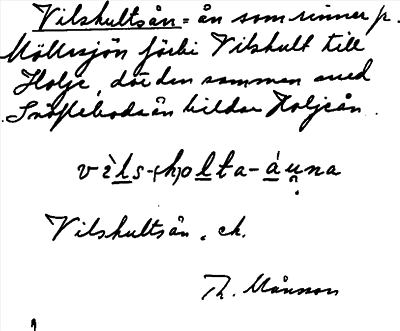 Vilshultsån = ån som rinner fr.
Möllesjön förbi Vilshult till
Holje, där den samman med
Snöflebodaån bildar Holjeån.
vìls-(h)olta-áuna
Vilshultsån, ek.
Th. Månsson